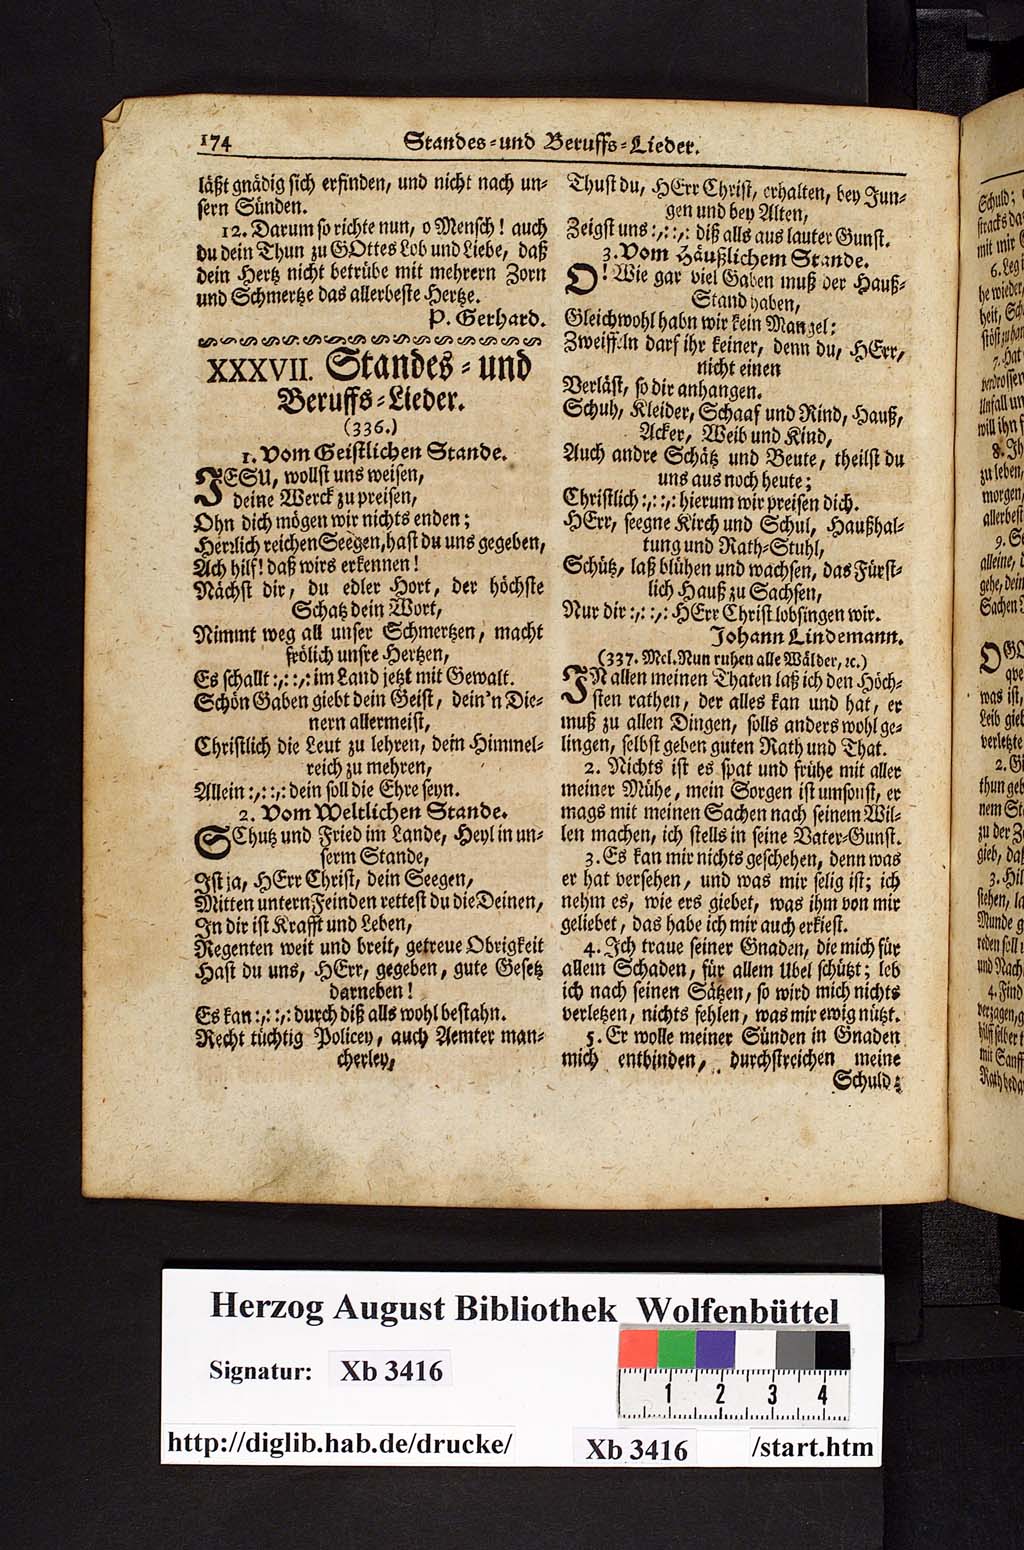 174 Standes-und Beruffs-Lieder.
läßt gnädig sich erfinden, und nicht nach un-
sern Sünden.
12. Darum so richte nun, o Mensch! auch
du dein Thun zu GOttes Lob und Liebe, daß
dein Hertz nicht betrübe mit mehrern Zorn
und Schmertze das allerbeste Hertze.
P. Gerhard.
XXXVII. Standes-und
Beruffs-Lieder.
(336.)
1. Vom Geistlichen Stande.
JESU, wollst uns weisen,
deine Werck zu preisen,
Ohn dich mögen wir nichts enden;
Herrlich reichen Seegen, hast du uns gegeben,
Ach hilf! daß wirs erkennen!
Nächst dir, du edler Hort, der höchste
Schatz dein Wort,
Nimmt weg all unser Schmertzen, macht
frölich unsre Hertzen,
Es schallt :,: :,: im Land jetzt mit Gewalt.
Schön Gaben giebt dein Geist, dein'n Die-
nern allermeist,
Christlich die Leut zu lehren, dein Himmel-
reich zu mehren,
Allein :,: :,: dein soll die Ehre seyn.
2. Vom Weltlichen Stande.
SChutz und Fried im Lande, Heyl in un-
serm Stande,
Ist ja, HErr Christ, dein Seegen,
Mitten untern Feinden rettest du die Deinen,
In dir ist Krafft und Leben,
Regenten weit und breit, getreue Obrigkeit
Hast du uns, HErr, gegeben, gute Gesetz
darneben!
Es kan :,: :,: durch diß alls wohl bestahn.
Recht tüchtig Policey, auch Aemter man-
cherley,
Thust du, HErr Christ, erhalten, bey Jun-
gen und bey Alten,
Zeigst uns :,: :,: diß alls aus lauter Gunst.
3. Vom Häußlichem Stande.
O! Wie gar viel Gaben muß der Hauß-
Stand haben,
Gleichwohl habn wir kein Mangel:
Zweiffeln darf ihr keiner, denn du, HErr,
nicht einen
Verläst, so dir anhangen.
Schuh, Kleider, Schaaf und Rind, Hauß,
Acker, Weib und Kind,
Auch andre Schätz und Beute, theilst du
uns aus noch heute;
Christlich :,: :,: hierum wir preisen dich.
HErr, seegne Kirch und Schul, Haußhal-
tung und Rath-Stuhl,
Schütz, laß blühen und wachsen, das Fürst-
lich Hauß zu Sachsen,
Nur dir :,: :,: HErr Christ lobsingen wir.
Johann Lindemann.
(337. Mel. Nun ruhen alle Wälder, ꝛc.)
IN allen meinen Thaten laß ich den Höch-
sten rathen, der alles kan und hat, er
muß zu allen Dingen, solls anders wohl ge-
lingen, selbst geben guten Rath und That.
2. Nichts ist es spat und frühe mit aller
meiner Mühe, mein Sorgen ist umsonst, er
mags mit meinen Sachen nach seinem Wil-
len machen, ich stells in seine Vater-Gunst.
3. Es kan mir nichts geschehen, denn was
er hat versehen, und was mir selig ist; ich
nehm es, wie ers giebet, was ihm von mir
geliebet, das habe ich mir auch erkiest.
4. Ich traue seiner Gnaden, die mich für
allem Schaden, für allem Ubel schützt; leb
ich nach seinen Sätzen, so wird mich nichts
verletzen, nichts fehlen, was mir ewig nützt.
5. Er wolle meiner Sünden in Gnaden
mich entbinden, durchstreichen meine
Schuld;
Schuld;
mit mir
6. Leg
he wieder,
heit,
7. Hat
Unfall un
will ihn
8. Ih
zu leben,
morgen,
allerbest
9. Se
alleine,
gehe, dein
Sachen
was ist,
Leib gieb
verletzte
2. Gi
thun geb
nem St
zu der Z
gieb, daß
3. Hil
stehen, la
Munde g
reden soll
und Nach
4. Find
verzagen, g
mit Sanff
Rath bed
Herzog August Bibliothek Wolfenbüttel
Signatur: Xb 3416
1 2 3 4
http://diglib.hab.de/drucke/ Xb 3416 /start.htm